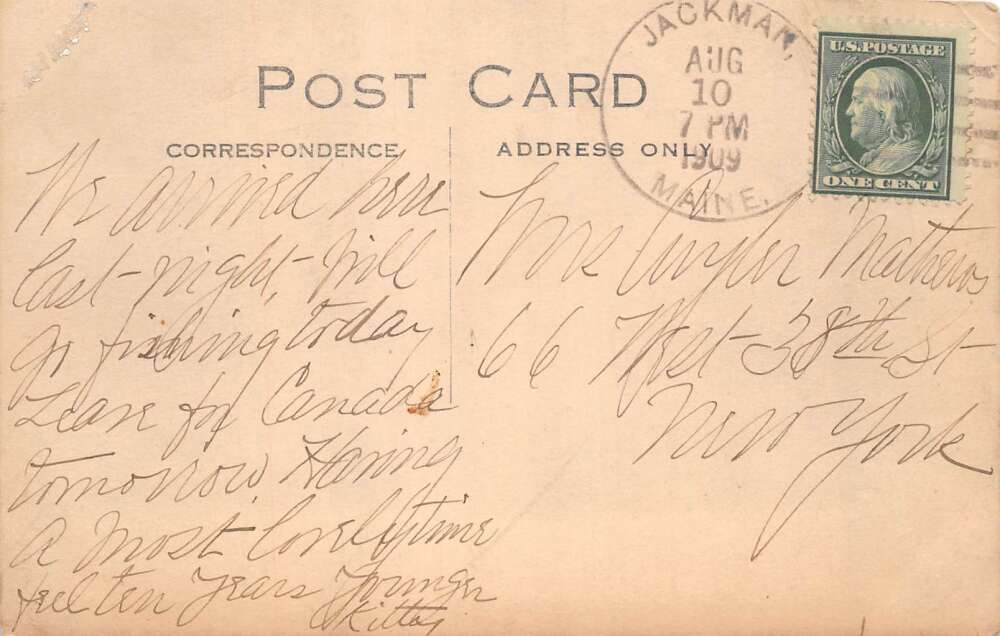 POST CARD
CORRESPONDENCE
ADDRESS ONLY
JACKMAN,
AUG
10
7 PM
1909
MAINE.
U.S. POSTAGE
ONE CENT
We arrived here
last night, will
go fishing today
Leave for Canada
tomorrow. Having
a most lovely time
feel ten years younger
Kitty
Mrs Mathews
66 West 38th St
New York